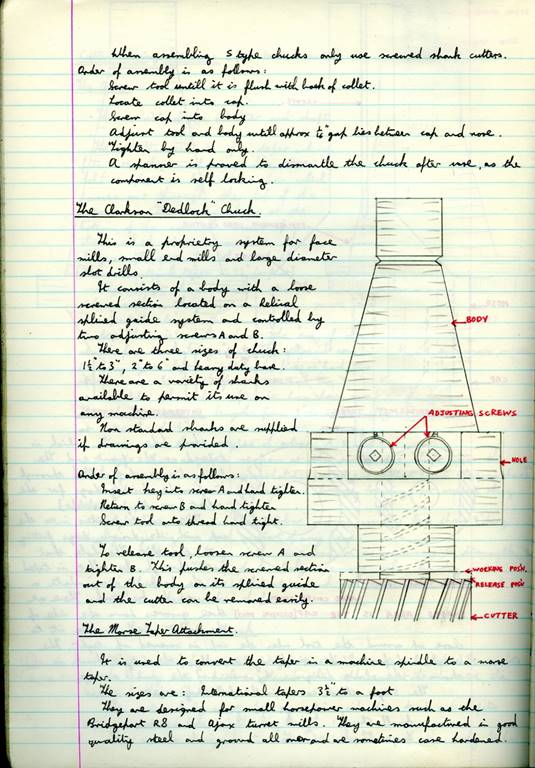 When assembling S type chucks only use screwed shank cutters.
Order of assembly is as follows:
Screw tool untill it is flush with back of collet.
Locate collet into cap.
Screw cap into body
Adjust tool and body untill approx gap lies between cap and nose.
Tighten by hand only.
A spanner is proved to dismantle the chuck after use, as the
component is self locking.
The Clarkson "Dedlock" Chuck.
This is a propriety system for face
mills, small end mills and large diameter
slot drills.
It consists of a body with a loose
screwed section located on a helical
splined guide system and controlled by
two adjusting screws A and B.
There are three sizes of chuck:
1½" to 3", 2" to 6" and heavy duty base.
There are a variety of shanks
available to permit its use on
any machine.
Non standard shanks are supplied
if drawings are provided.
Order of assembly is as follows:
Insert key into screw A and hand tighten.
Return to screw B and hand tighten
Screw tool onto thread hand tight.
To release tool, loosen screw A and
tighten B. This pushes the screwed section
out of the body on its splined guide
and the cutter can be removed easily.
BODY
ADJUSTING SCREWS
HOLE
WORKING POSN.
RELEASE POSN
CUTTER
The Morse Taper Attachment.
It is used to convert the taper in a machine spindle to a morse
taper.
The sizes are: International tapers 3½" to a foot
They are designed for small horsepower machines such as the
Bridgeport R8 and Ajax turret mills. They are manufactured in good
quality steel and ground all over and are sometimes case hardened.